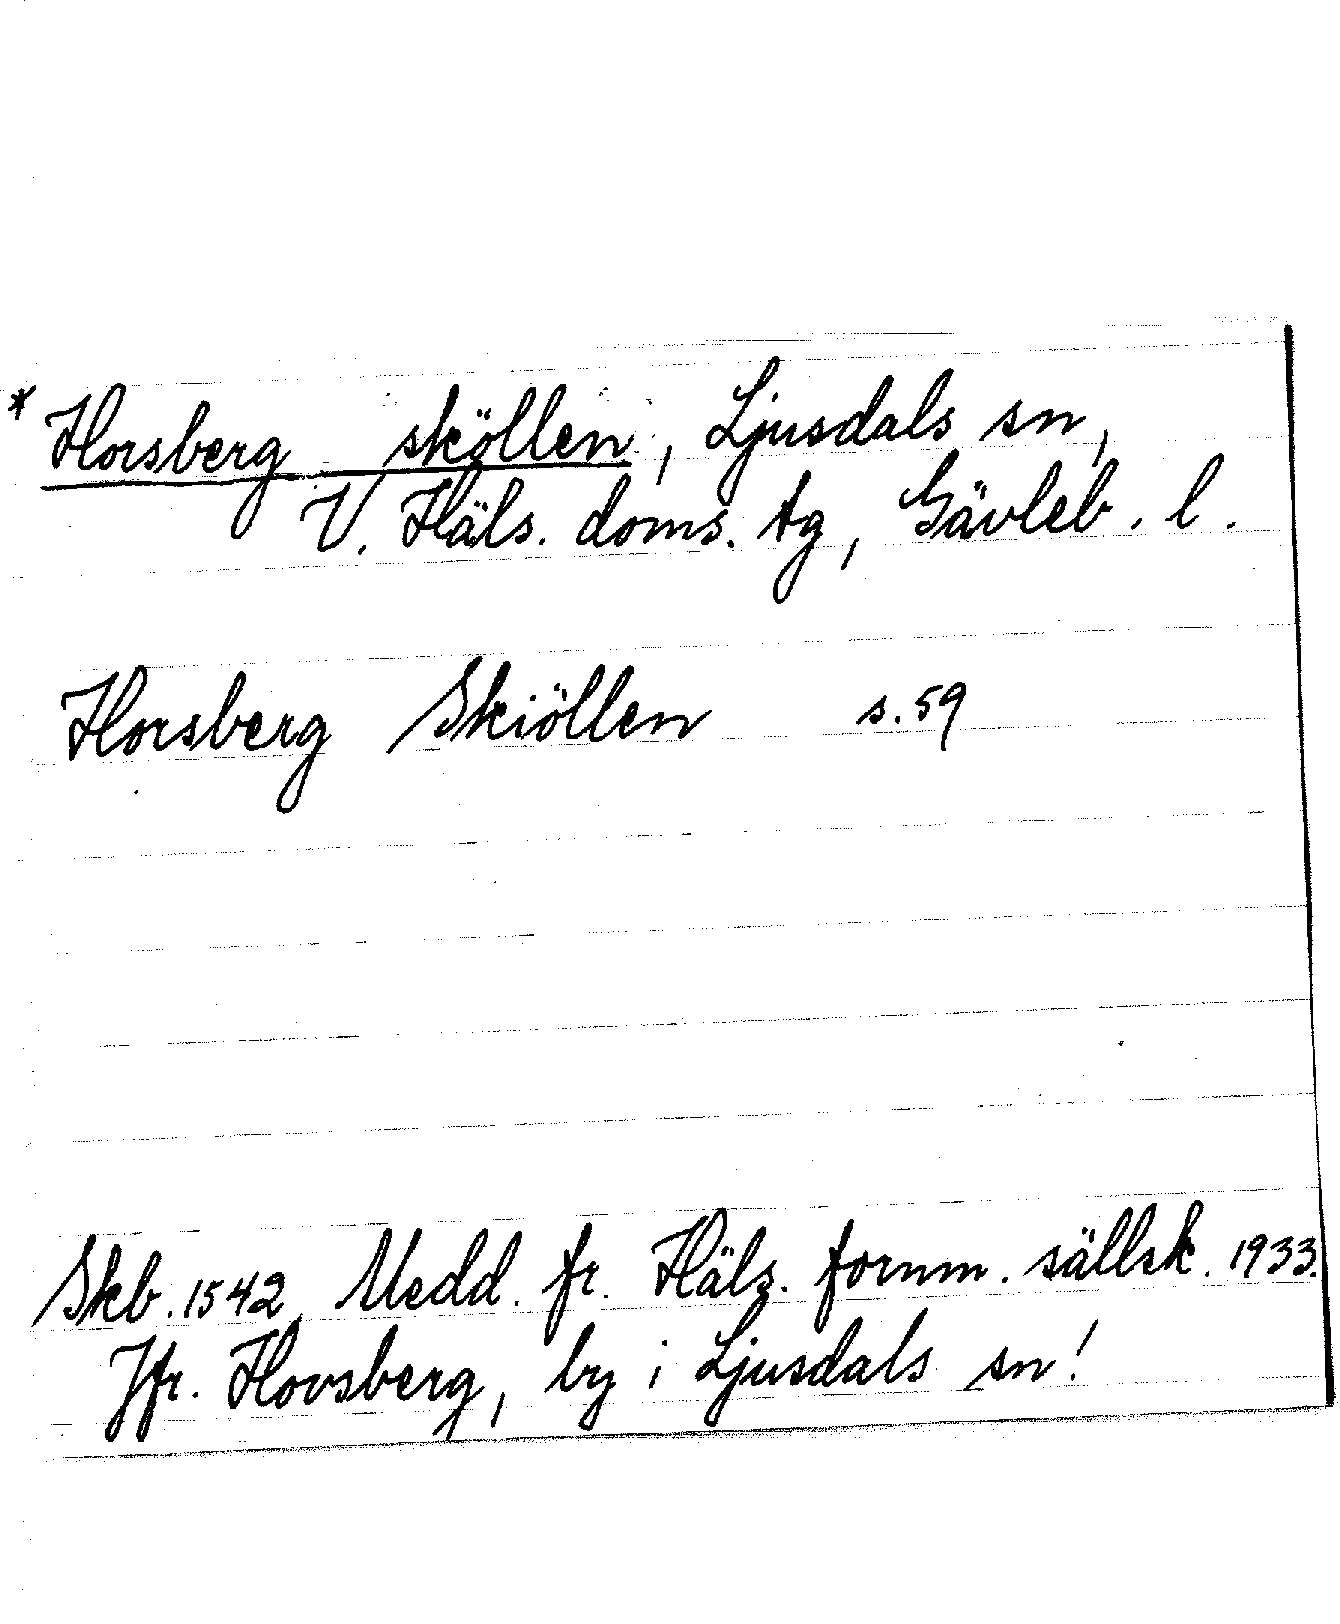 * Horsberg sköllen, Ljusdals sn,
V. Häls. doms. tg, Gävleb. l.
Horsberg Skiöllen s. 59
Skb. 1542, Medd. fr. Häls. fornm. sällsk. 1933.
Jfr. Hovsberg, by i Ljusdals sn!